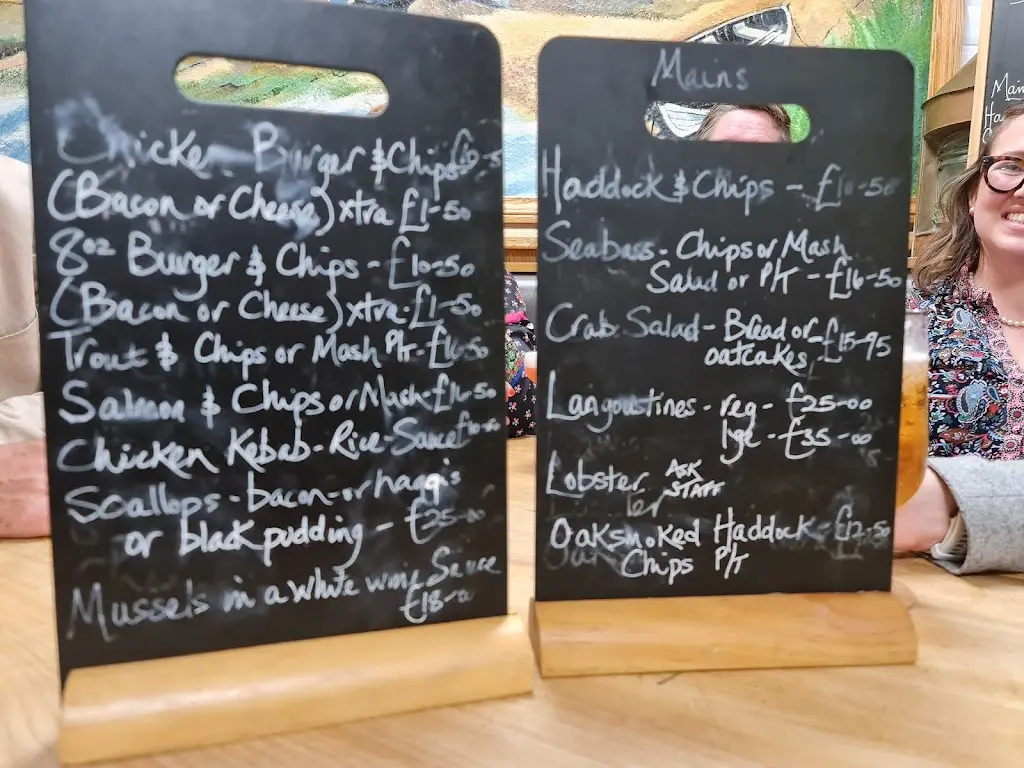 Chicken Burger & Chips
(Bacon or Cheese) xtra £1-50
8oz Burger & Chips - £10-50
(Bacon or Cheese) xtra - £1-50
Trout & Chips or Mash P/t - £16-50
Salmon & Chips or Mash - £16-50
Chicken Kebab - Rice - Sauce
Scallops - bacon - or haggis
or black pudding - £25-00
Mussels in a white wine Sauce
£18-0
Mains
Haddock & Chips - £10-50
Seabass - Chips or Mash
Salad or P/t - £16-50
Crab Salad - Bread or - £15-95
oatcakes
Langoustines - reg - £25-00
lge - £35-00
Lobster ASK
STAFF
Oaksmoked Haddock - £12-50
Chips P/t
Main